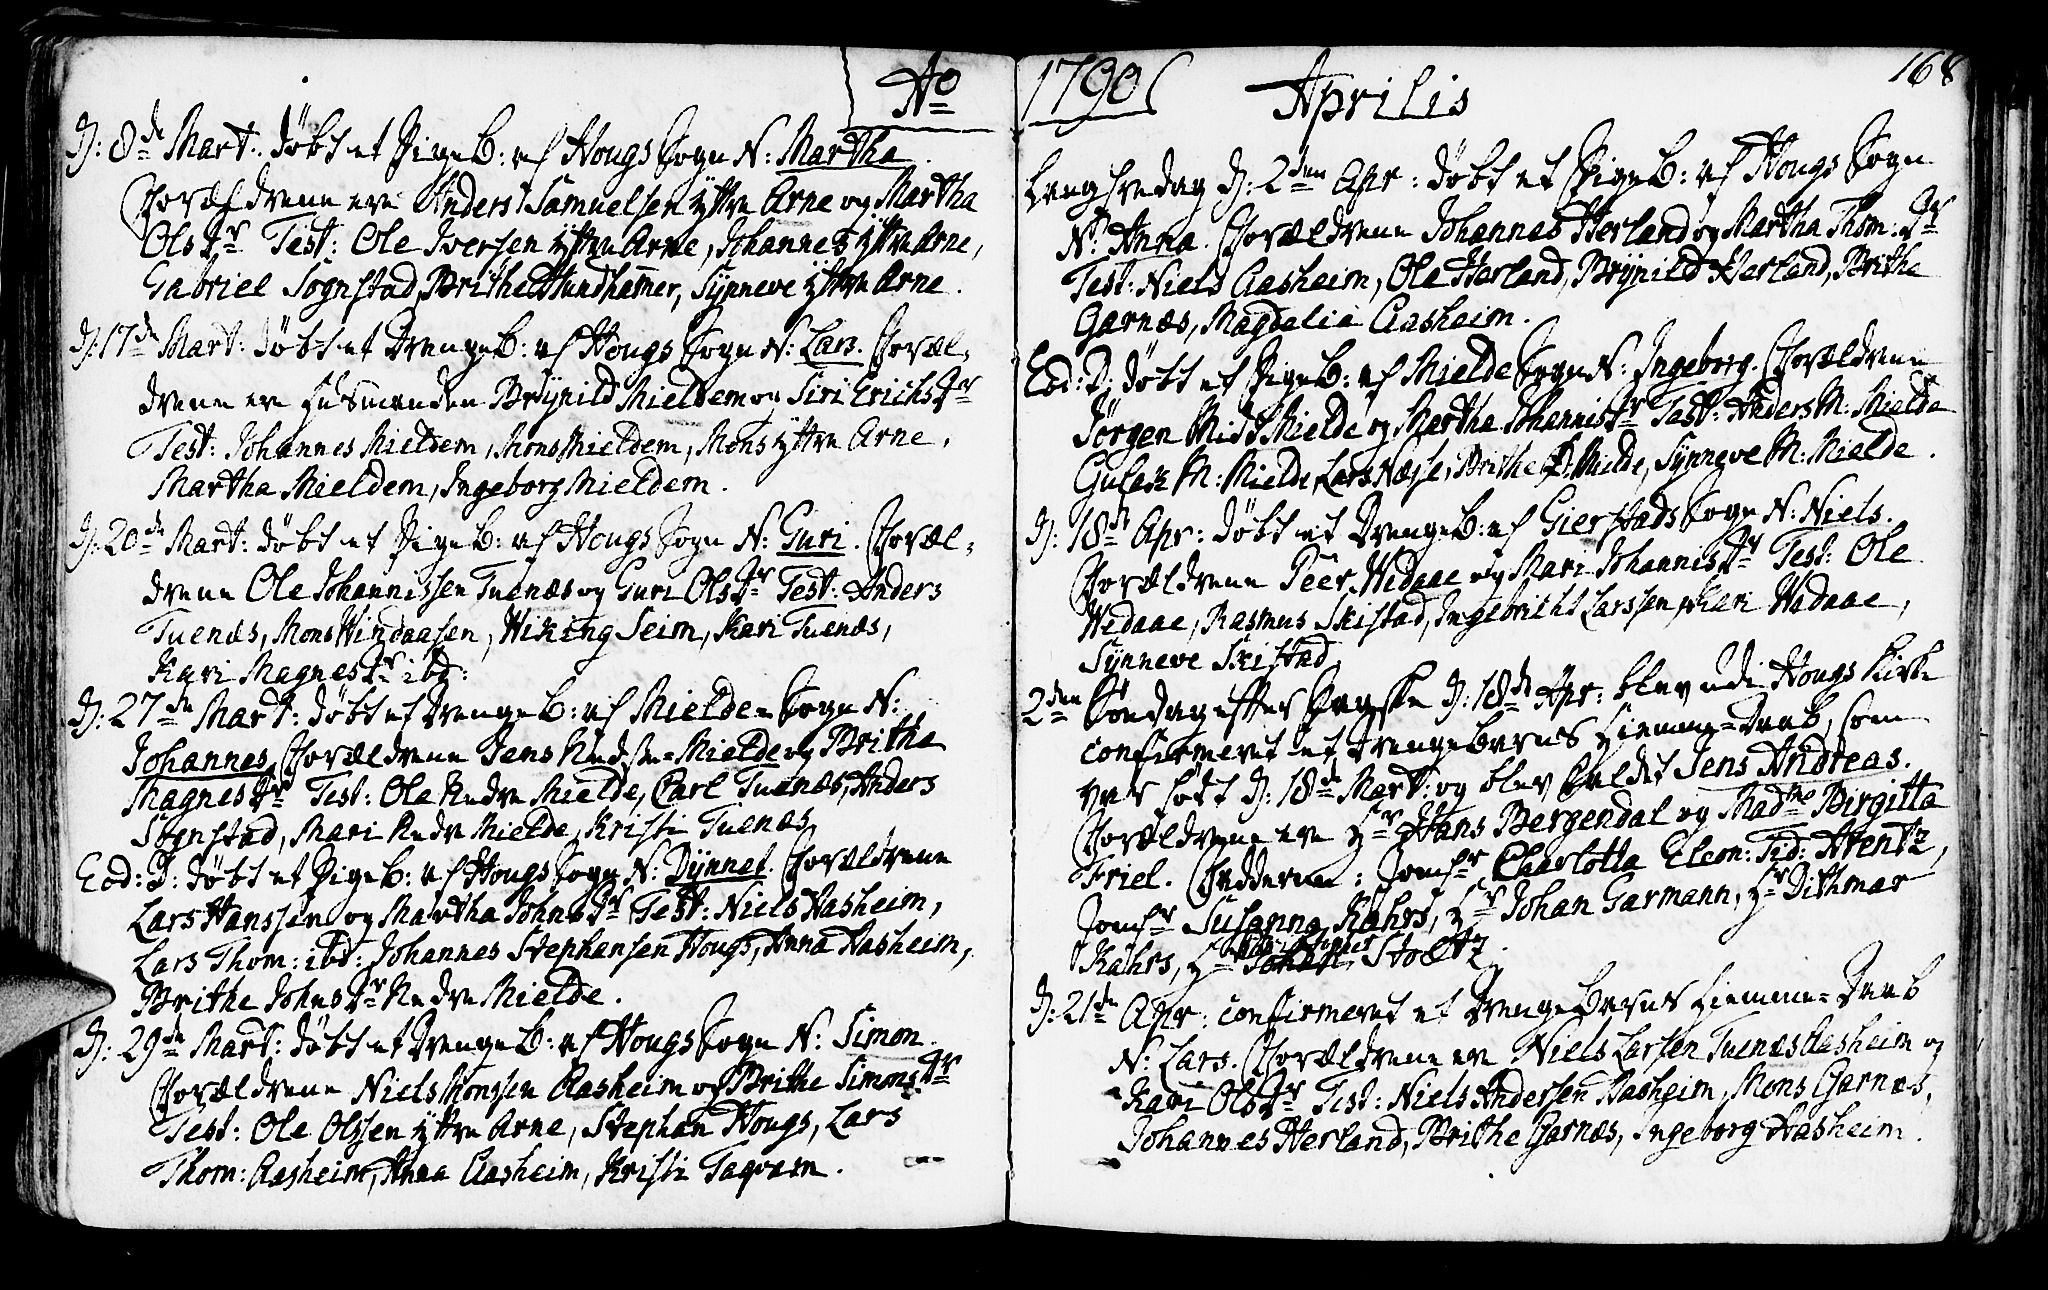 Ao
D: 8de Mart: döbt et PigeB: af Hougs Sogn N: Martha.
Forældrene ere Anders Samuelsen yttre Arne og Martha
OlsDr Test: Ole Iversen yttre Arne, Johannes yttre Arne,
Gabriel Sognstad, Brithe Hundhamer, Synneve yttre Arne.
D: 17de Mart: döbt et DrengeB: af Hougs Sogn N: Lars. Foræl-
drene ere Huusmanden Brÿnild Mieldem og Siri ErichsDr
Test: Johannes Mieldem, Mons Mieldem, Mons yttre Arne,
Martha Mieldem, Ingeborg Mieldem.
D: 20de Mart: döbt et PigeB: af Hougs Sogn N: Guri. Foræl-
drene Ole Johannissen Tuenæs og Guri OlsDr Test: Anders
Tuenæs, Mons Windaasen, Wiking Seim, Kari Tuenæs,
Kari MagnesDr ibd:
D: 27de Mart: döbt et DrengeB: af Mielde-Sogn N:
Johannes, Forældrene Jens Nedre-Mielde og Britha
MagnesDr Test: Ole Nedre Mielde, Carl Tuenæs, Anders
Sognstad, Mari Nedre Mielde, Kristi Tuenæs
Eod: D: döbt et PigeB: af Hougs Sogn N: Dÿnnet. Forældrene
Lars Hanssen og Martha JohnsDr Test: Niels Aasheim,
Lars Thom: ibd: Johannes Stephansen Hougs, Anna Aasheim,
Brithe JohnsDr Nedre Mielde.
D: 29de Mart: döbt et DrengeB: af Hougs Sogn N: Simon.
Forældrene Niels Monssen Aasheim og Brithe SimonsDr
Test: Ole Olssen yttre Arne, Stephan Hougs, Lars
Thom: Aasheim, Anna Aasheim, Kristi Taqvam.
1790 Aprilis
168
Langfredag D: 2den Apr: döbt et PigeB: af Hougs Sogn
N: Anna. Forældrene Johannes Herland og Martha Thom: Dr
Test: Niels Aasheim, Ole Herland, Brÿnild Herland, Brithe
Garnæs, Magdalia Aasheim.
Eod: D: döbt et PigeB: af Mielde Sogn N: Ingeborg. Forældrene
Jörgen Midt Mielde og Martha JohannisDr Test: Anders M: Mielde
Gulak M: Mielde, Lars Næse, Brithe Mielde, Synneve M: Mielde.
D: 18de Apr: döbt et DrengeB: af Gierstads Sogn N: Niels.
Forældrene Peer Wedaae og Mari JohannisDr Test: Ole
Wedaae, Rasmus Skistad, Ingebricht Larssen, Kari Wedaae,
Synneve Skistad
2den Söndag efter Paaske D: 18de Apr: blev udi Hougs Kirke
confirmeret et DrengeBarns Hiemme-Daab, som
var födt D: 18de Mart: og blev kaldet Jens Andreas.
Forældrene ere Hr Hans Bergendal og Madme Birgitta
Friel. Fadderne: Jomfr Charlotta Eleon: Sid: Arentz,
Jomfr Susanna Kahrs, Hr Johan Garmann, Hr Dithmar
Kahrs, Hr Stoltz.
D: 21de Apr: confirmeret et DrengeBarns Hiemme-Daab
N: Lars. Forældrene ere Niels Larsen Tuenæs Aasheim og
Kari OlsDr Test: Niels Andersen Aasheim, Mons Garnæs,
Johannes Herland, Brithe Garnæs, Ingeborg Aasheim.